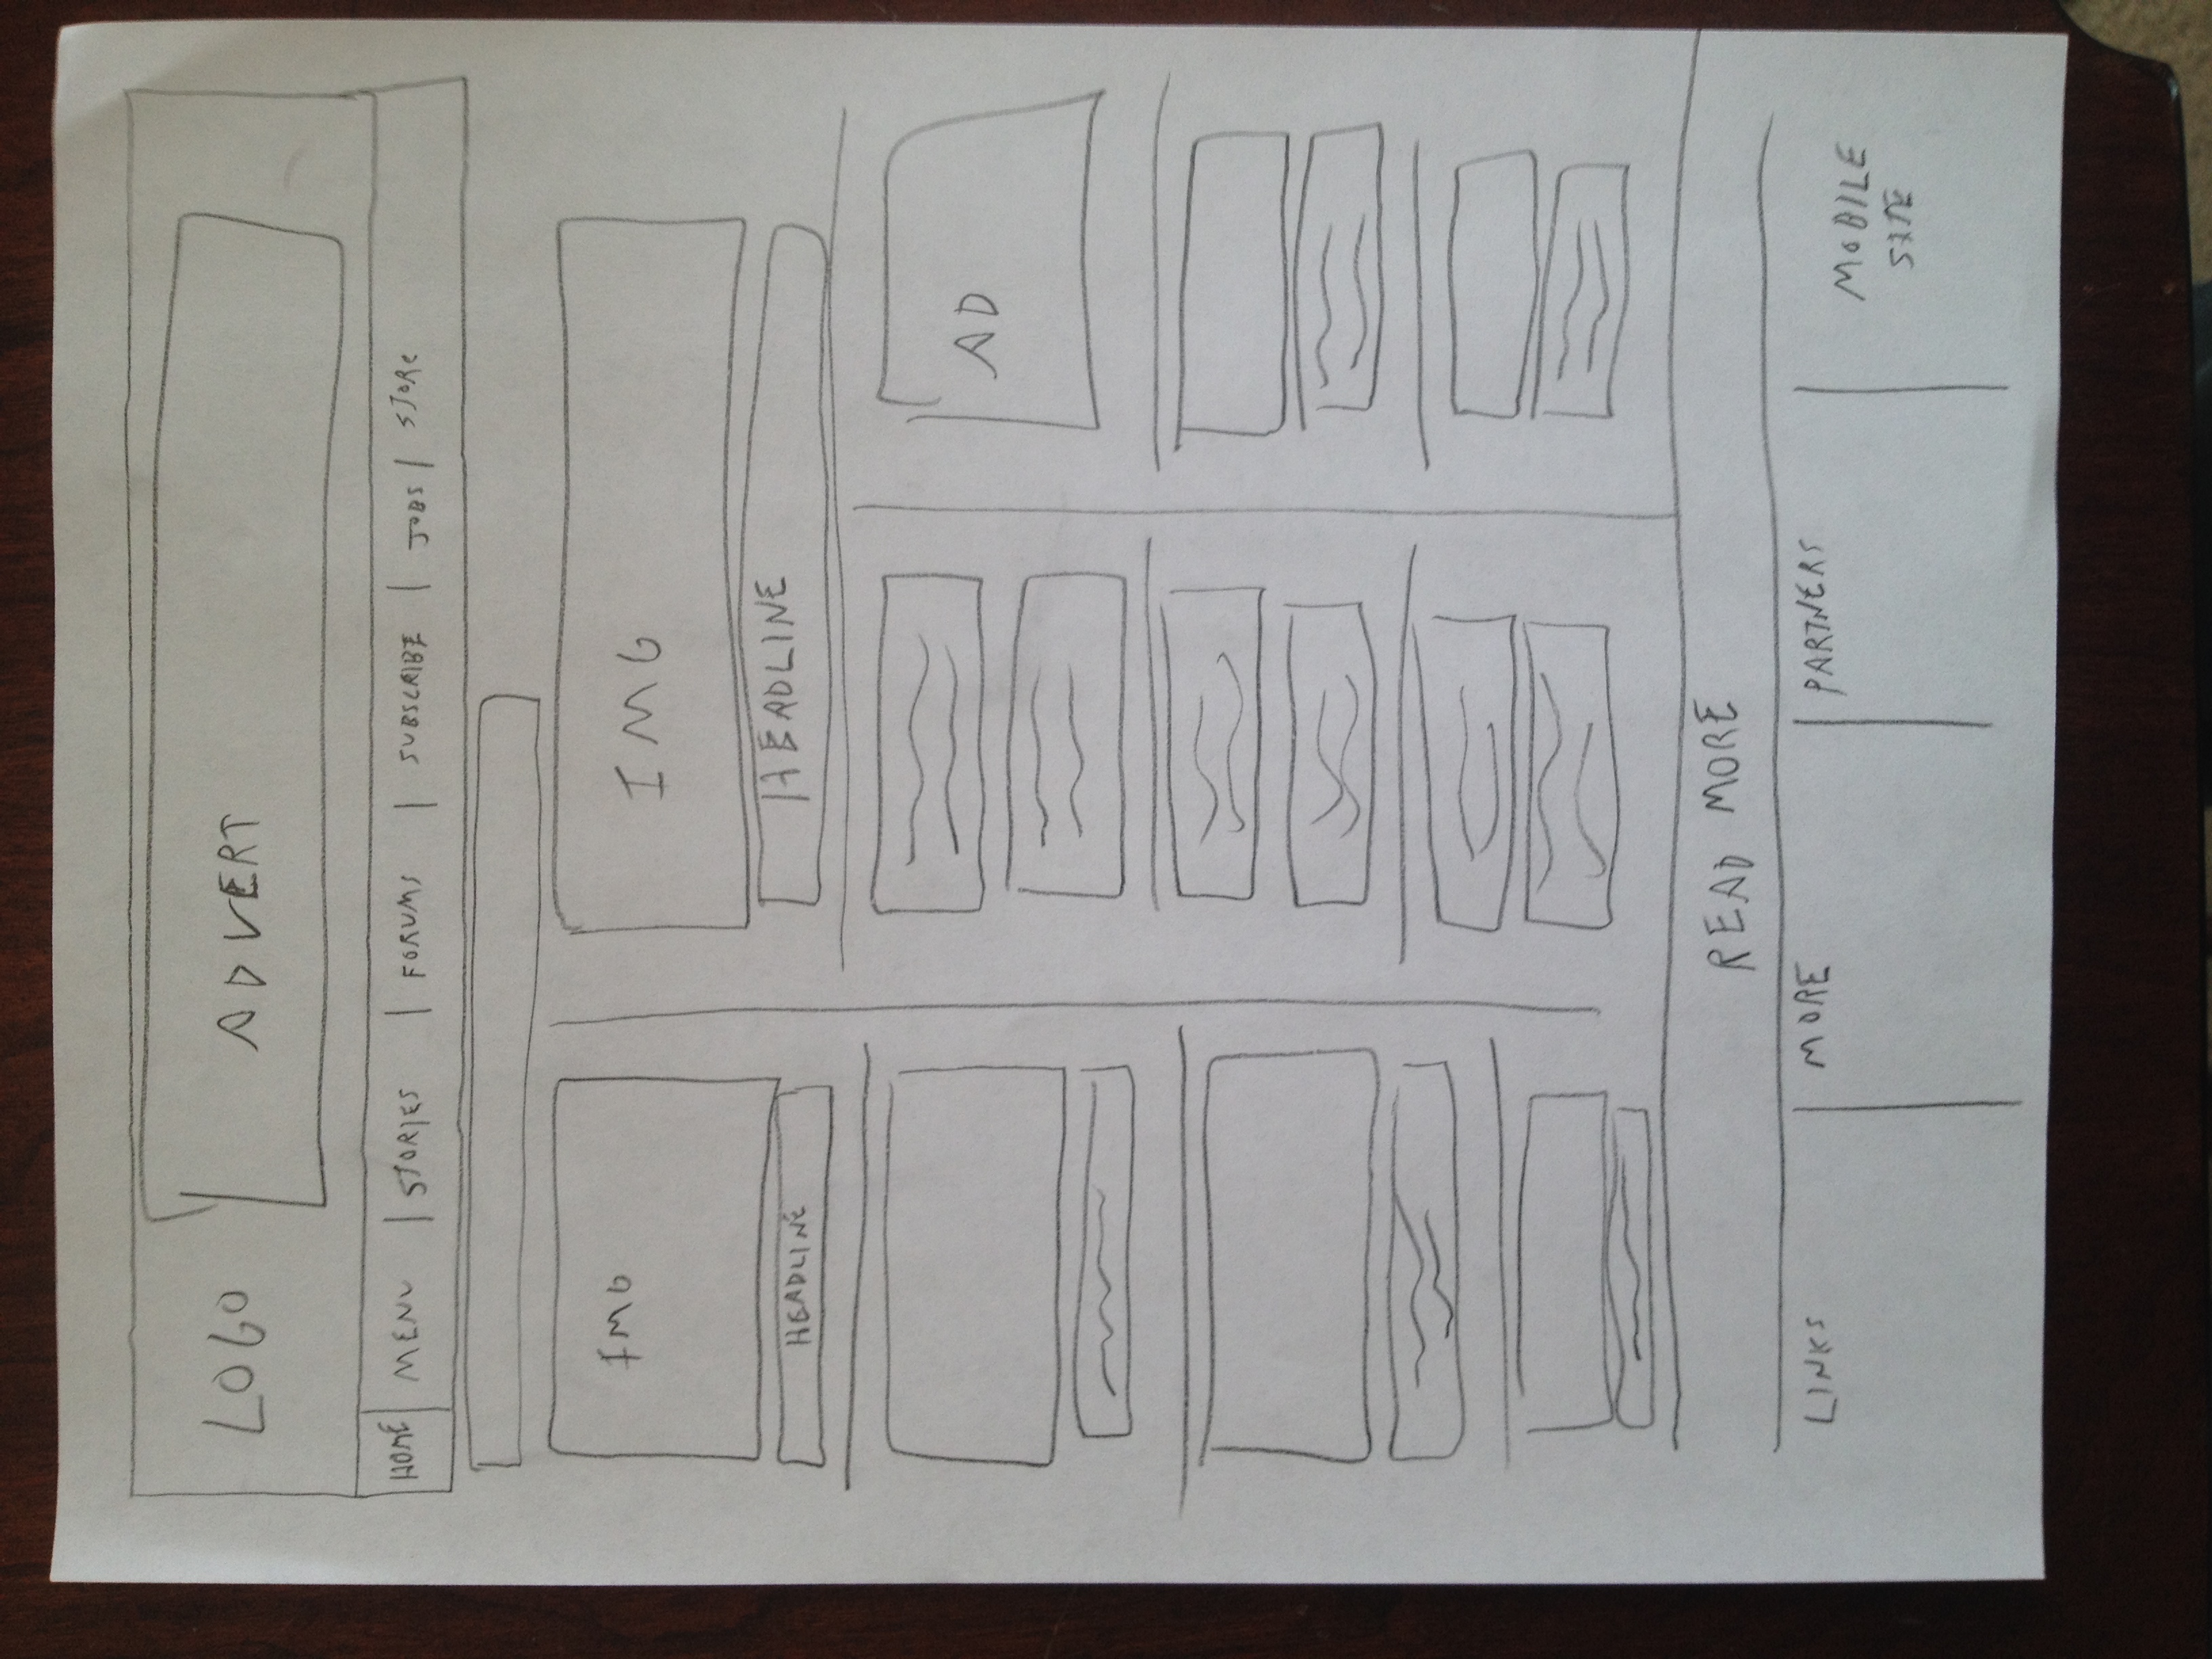 LOGO
ADVERT
HOME | MENU | STORIES | FORUMS | SUBSCRIBE | JOBS | STORE
IMG
HEADLINE
IMG
HEADLINE
AD
READ MORE
LINKS
MORE
PARTNERS
MOBILE
SITE